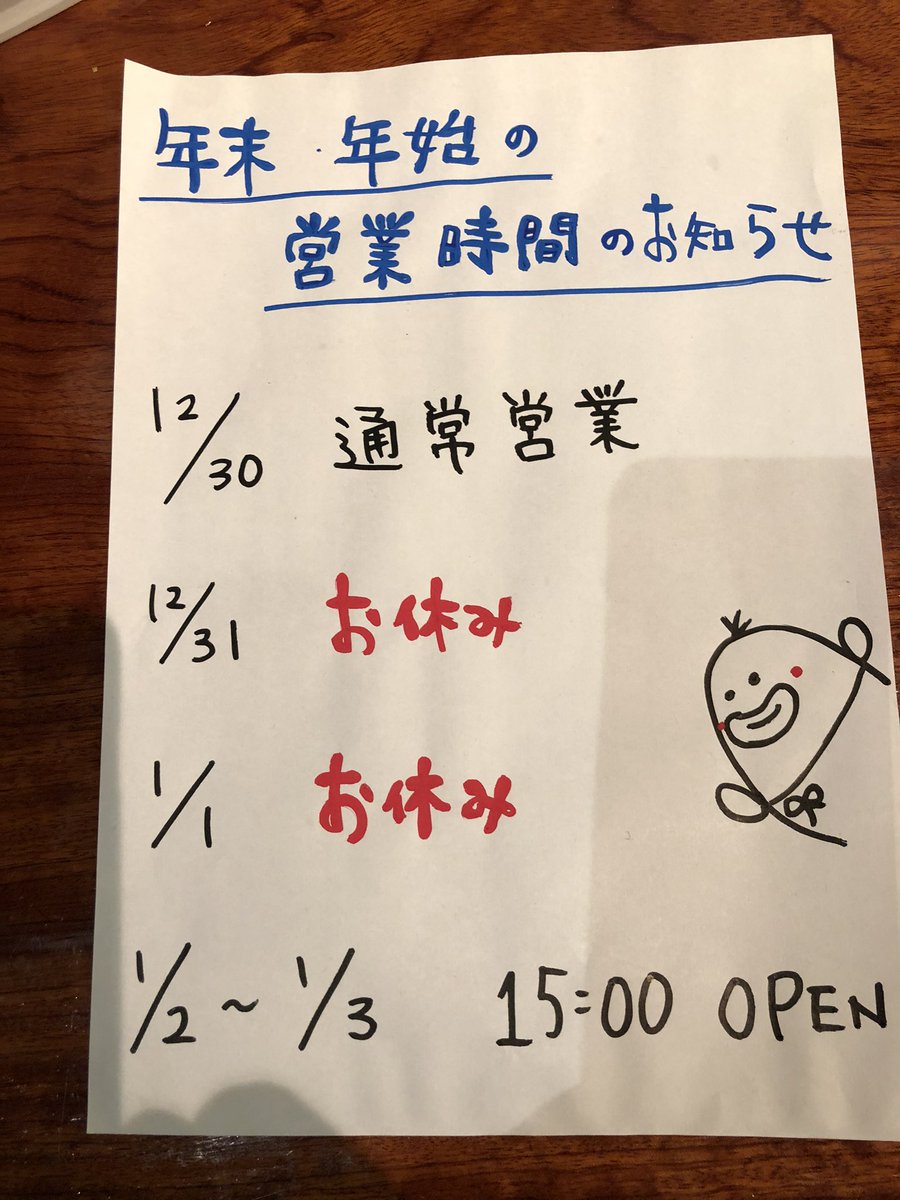 年末 年始の
営業時間のお知らせ
12/30 通常営業
12/31 お休み
1/1 お休み
1/2 ~ 1/3 15:00 OPEN